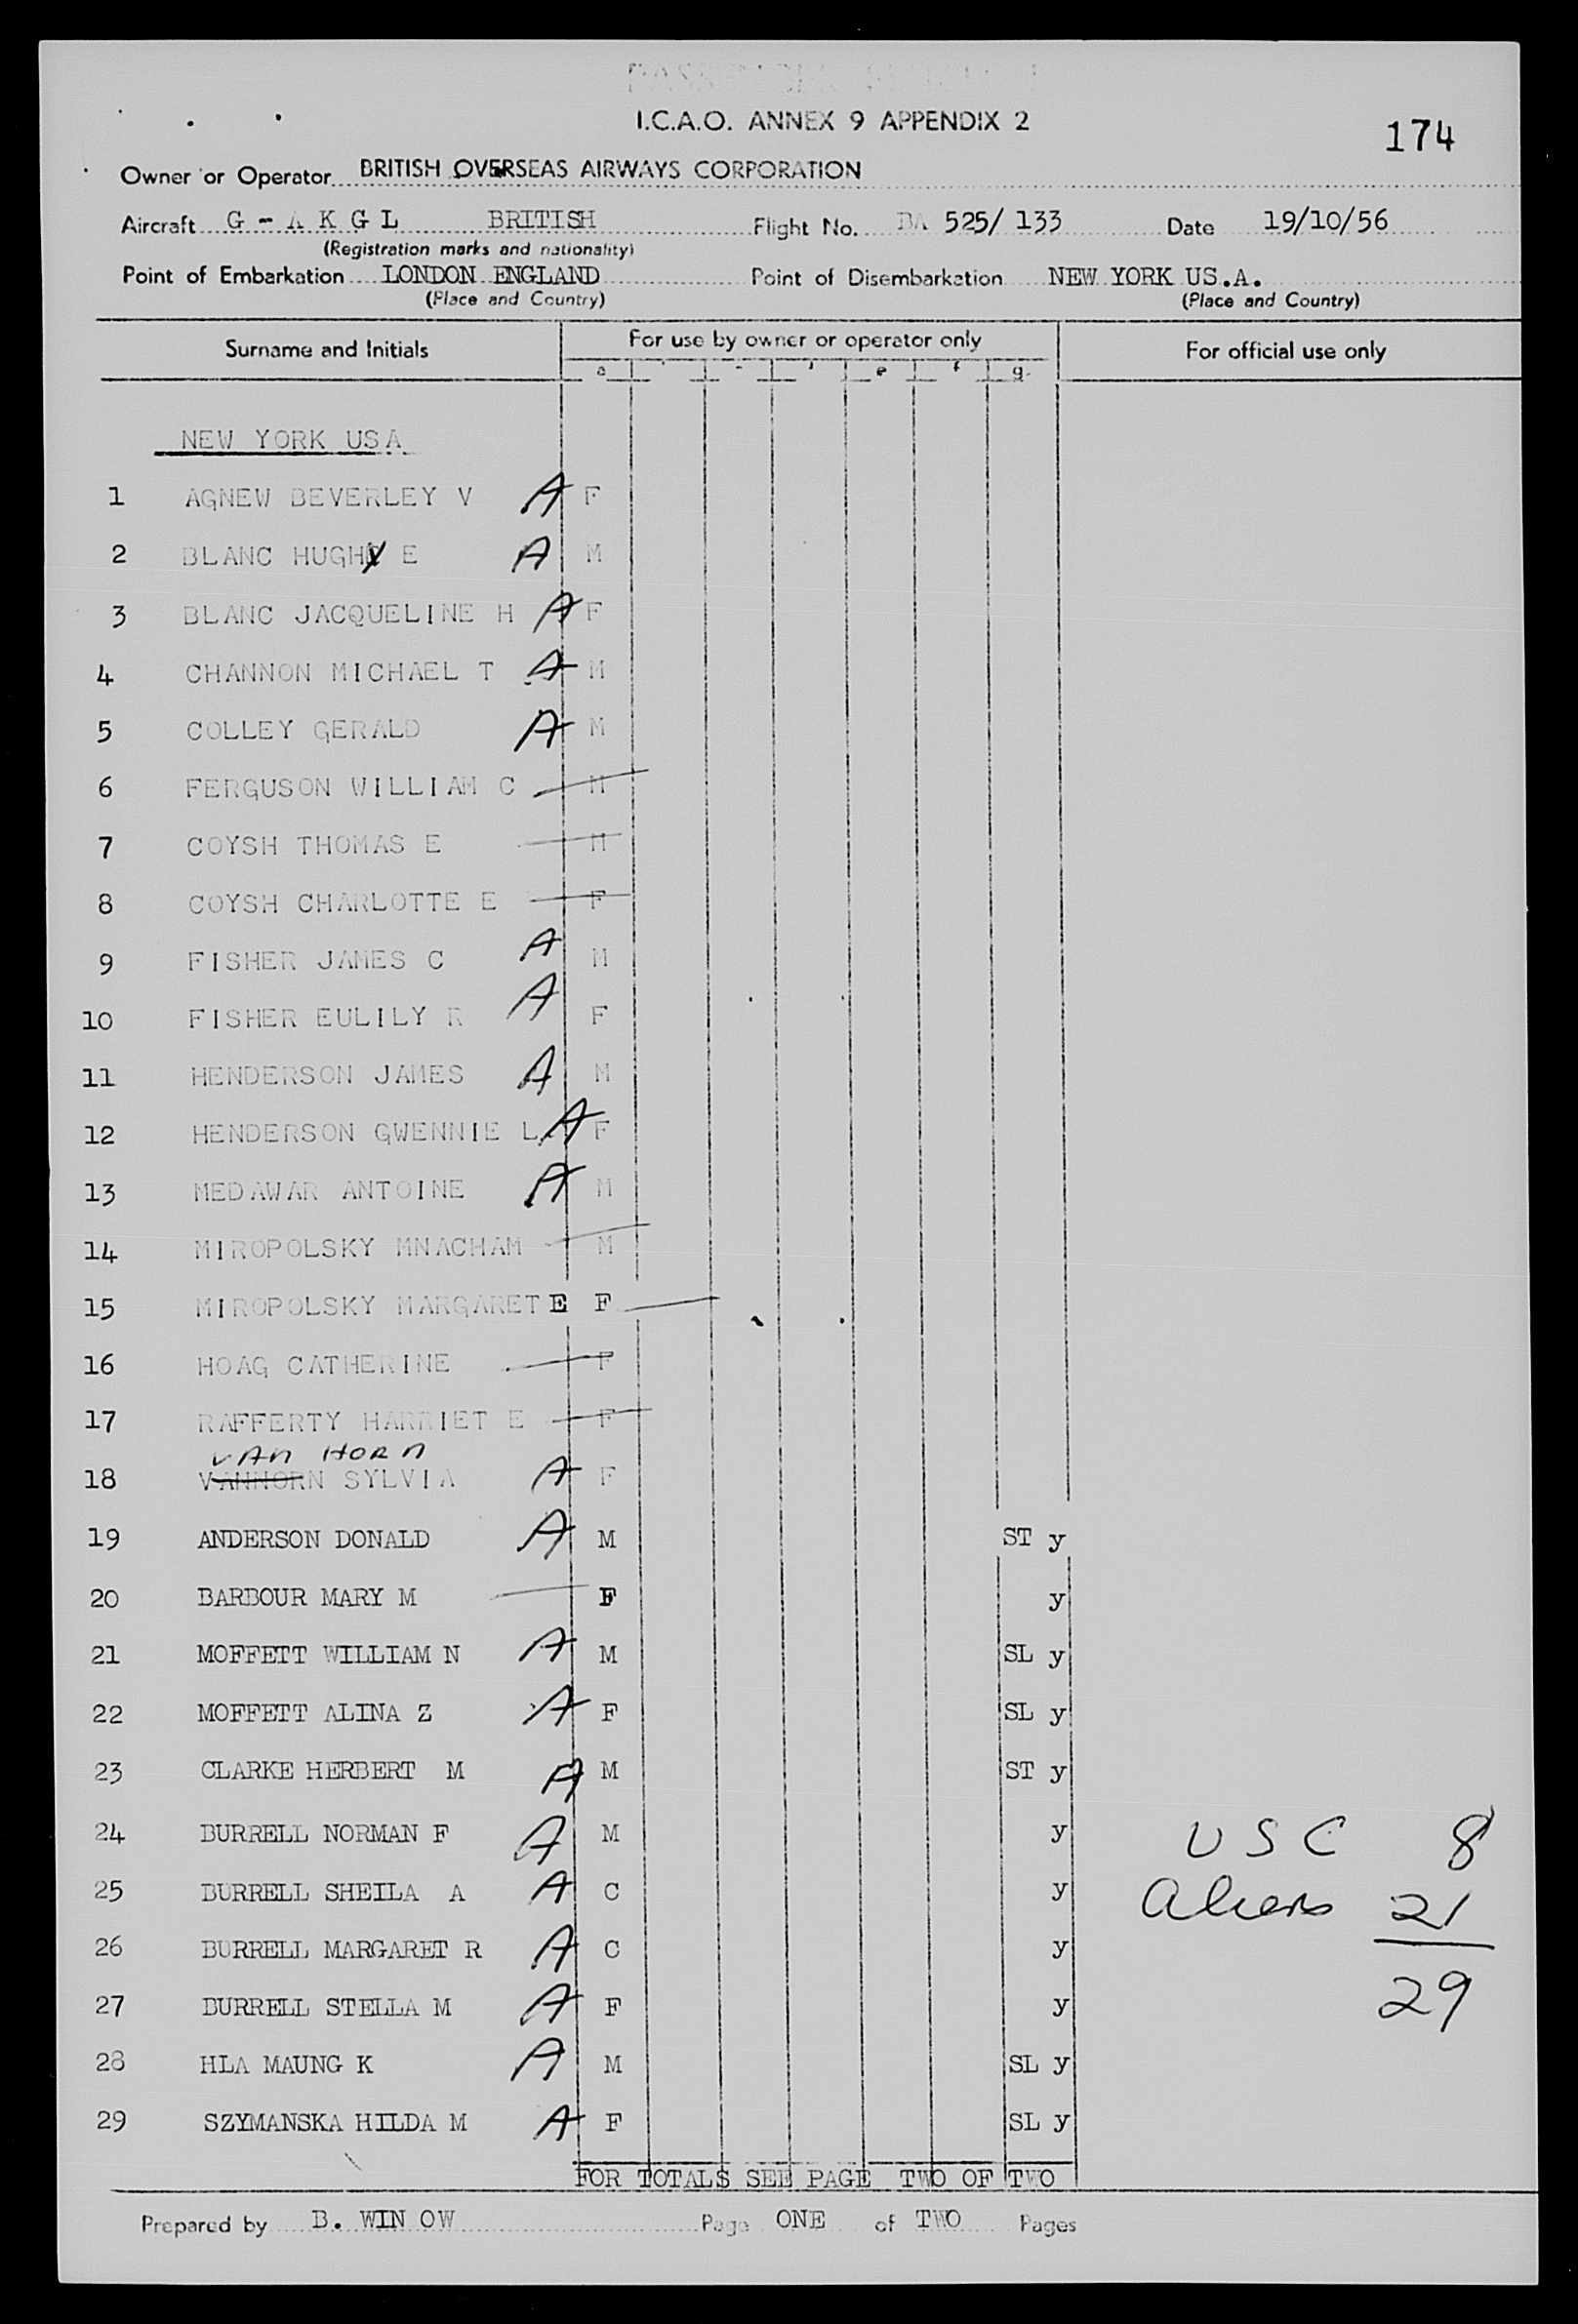 I.C.A.O. ANNEX 9 APPENDIX 2
174
Owner or Operator BRITISH OVERSEAS AIRWAYS CORPORATION
Aircraft G - A K G L BRITISH Flight No. BA 525/ 133 Date 19/10/56
(Registration marks and nationality)
Point of Embarkation LONDON ENGLAND Point of Disembarkation NEW YORK US.A.
(Place and Country) (Place and Country)
Surname and Initials For use by owner or operator only For official use only
a e f g
NEW YORK USA
1 AGNEW BEVERLEY V A F
2 BLANC HUGH E A M
3 BLANC JACQUELINE H A F
4 CHANNON MICHAEL T A M
5 COLLEY GERALD A M
6 FERGUSON WILLIAM C M
7 COYSH THOMAS E M
8 COYSH CHARLOTTE E F
9 FISHER JAMES C A M
10 FISHER EULILY R A F
11 HENDERSON JAMES A M
12 HENDERSON GWENNIE L A F
13 MEDAWAR ANTOINE A M
14 MIROPOLSKY MNACHAM M
15 MIROPOLSKY MARGARETE F
16 HOAG CATHERINE F
17 RAFFERTY HARRIET E F
VAN HORN
18 VANHORN SYLVIA A F
19 ANDERSON DONALD A M ST y
20 BARBOUR MARY M F y
21 MOFFETT WILLIAM N A M SL y
22 MOFFETT ALINA Z A F SL y
23 CLARKE HERBERT M A M ST y
24 BURRELL NORMAN F A M y
USC 8
25 BURRELL SHEILA A A C y
Aliens 21
26 BURRELL MARGARET R A C y
27 BURRELL STELLA M A F y
29
28 HLA MAUNG K A M SL y
29 SZYMANSKA HILDA M A F SL y
FOR TOTALS SEE PAGE TWO OF TWO
Prepared by B. WIN OW Page ONE of TWO Pages